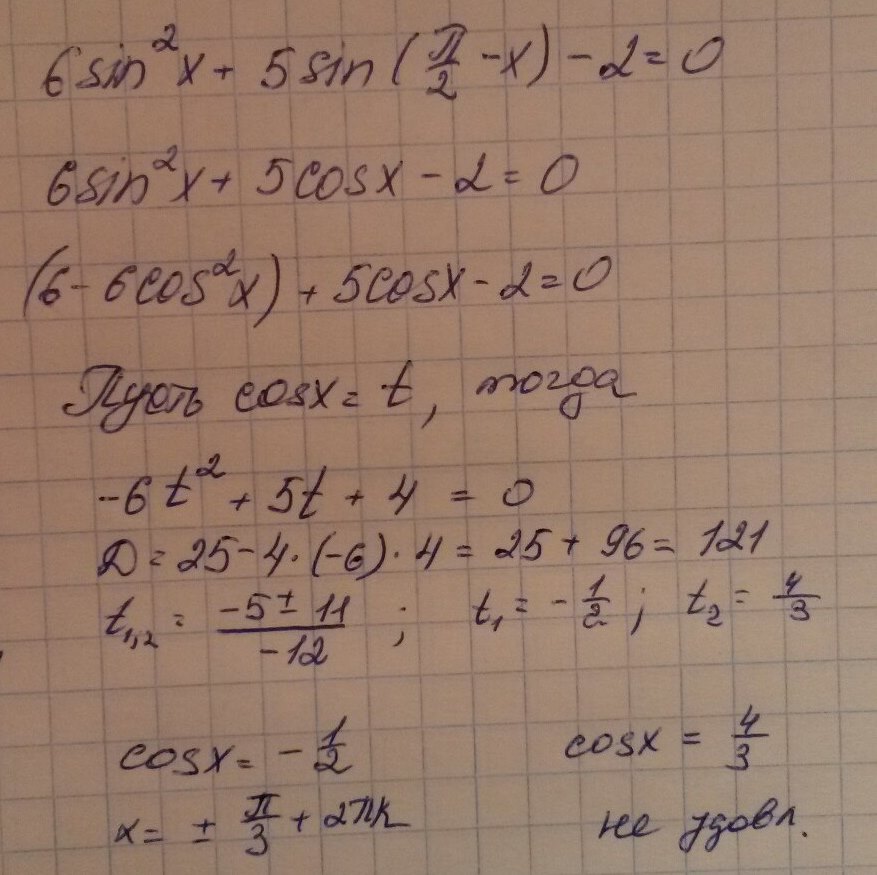 6sin²x + 5sin(π/2 - x) - 2 = 0
6sin²x + 5cosx - 2 = 0
(6 - 6cos²x) + 5cosx - 2 = 0
Пусть cosx = t, тогда
-6t² + 5t + 4 = 0
D = 25 - 4·(-6)·4 = 25 + 96 = 121
t₁,₂ = (-5 ± 11)/(-12) ; t₁ = -1/2 ; t₂ = 4/3
cosx = -1/2 cosx = 4/3
x = ± π/3 + 2πk не удовл.